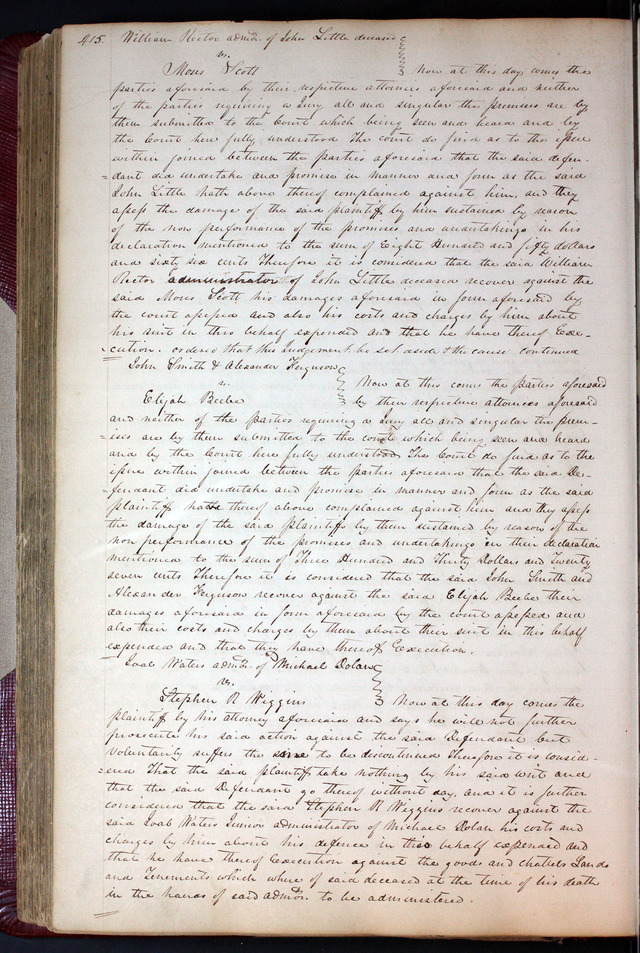 415. William Rector admr. of John Little deceased
vs.
Moses Scott Now at this day, comes the
parties aforesaid by their respective attornies aforesaid and neither
of the parties requiring a Jury, all and singular the premises are by
them submitted to the Court which being seen and heard and by
the Court here fully understood The court do find as to the issue
within joined between the parties aforesaid that the said defen-
dant did undertake and promise in manner and form as the said
John Little hath above thereof complained against him, and they
assess the damage of the said plaintiff by him sustained by reason
of the non performance of the promises and undertakings in his
declaration mentioned to the sum of Eight Hundred and fifty dollars
and sixty six cents Therefore it is considered that the said William
Rector administrator of John Little deceased recover against the
said Moses Scott his damages aforesaid in form aforesaid by
the court assessed and also his costs and charges by him about
his suit in this behalf expended and that he have thereof Exe-
cution. ordered that this Judgement be set aside & the cause continued
John Smith & Alexander Ferguson
vs.
Elijah Beebe Now at this comes the parties aforesaid
by their respective attornies aforesaid
and neither of the parties requiring a Jury all and singular the prem-
ises are by them submitted to the court which being seen and heard
and by the Court here fully understood The Court do find as to the
issue within joined between the parties aforesaid that the said De-
fendant did undertake and promise in manner and form as the said
plaintiff have thereof above complained against him and they assess
the damage of the said plaintiffs by them sustained by reason of the
non performance of the promises and undertakings in their declaration
mentioned to the sum of Three Hundred and Thirty Dollars and Twenty
seven cents Therefore it is considered that the said John Smith and
Alexander Ferguson recover against the said Elijah Beebe their
damages aforesaid in form aforesaid by the court assessed and
also their costs and charges by them about their suit in this behalf
expended and that they have thereof Execution.
Joab Waters admr. of Michael Dolan
vs.
Stephen R Wiggins Now at this day comes the
plaintiff by his attorney aforesaid and says he will not further
prosecute his said action against the said Defendant but
voluntarily suffers the same to be discontinued Therefore it is consid-
ered That the said plaintiff take nothing by his said writ and
that the said Defendant go thereof without day, and it is further
considered that the said Stephen R Wiggins recover against the
said Joab Waters Junior administrator of Michael Dolan his costs and
charges by him about his defence in this behalf expended and
that he have thereof Execution against the goods and chattels Lands
and Tenements which where of said deceased at the time of his death
in the hands of said admr. to be administered.